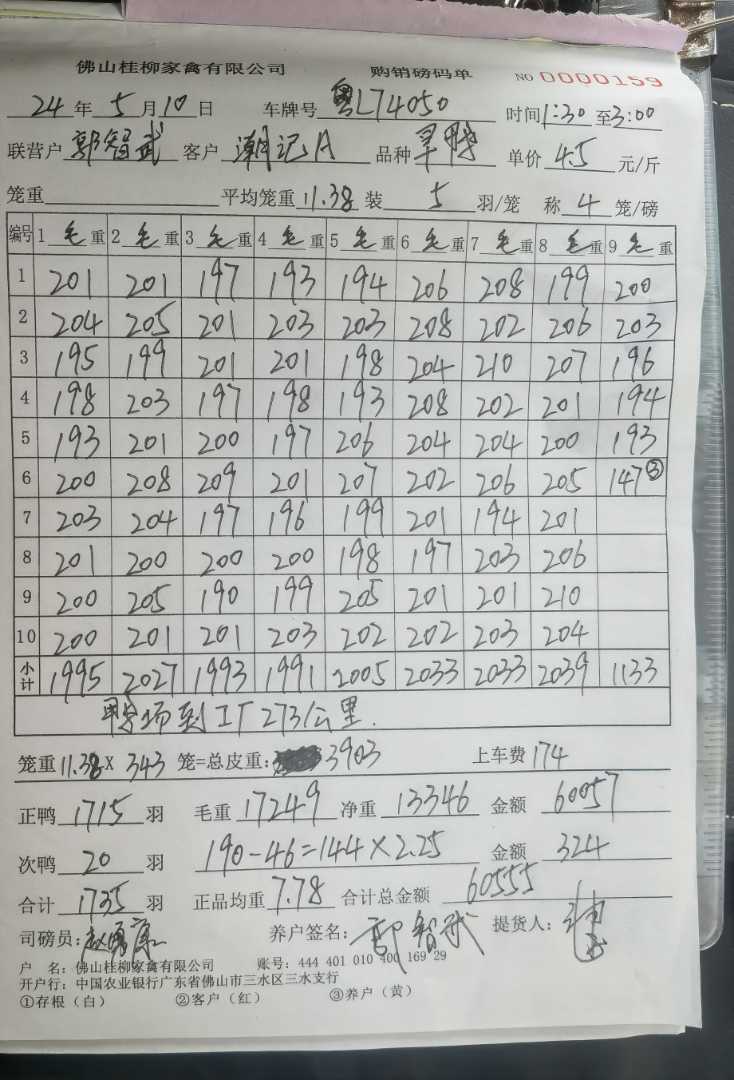 佛山桂柳家禽有限公司 购销磅码单 NO 0000159
24年5月10日 车牌号 粤L74050 时间1:30至3:00
联营户 郭智武 客户 潮记A 品种 旱鸭 单价 4.5 元/斤
笼重 平均笼重 11.38 装 5 羽/笼 称 4 笼/磅
编号 1 毛重 2 毛重 3 毛重 4 毛重 5 毛重 6 毛重 7 毛重 8 毛重 9 毛重
1 201 201 197 193 194 206 208 199 200
2 204 205 201 203 203 208 202 206 203
3 195 199 201 201 198 204 210 207 196
4 198 203 197 198 193 208 202 201 194
5 193 201 200 197 206 204 204 200 193
6 200 208 209 201 207 202 206 205 147③
7 203 204 197 196 199 201 194 201
8 201 200 200 200 198 197 203 206
9 200 205 190 199 205 201 201 210
10 200 201 201 203 202 202 203 204
小计 1995 2027 1993 1991 2005 2033 2033 2039 1133
鸭场到工厂273公里.
笼重11.38X 343 笼=总皮重: 3903 上车费 174
正鸭 1715 羽 毛重 17249 净重 13346 金额 60057
次鸭 20 羽 190-46=144×2.25 金额 324
合计 1735 羽 正品均重 7.78 合计总金额 60555
司磅员: 养户签名: 郭智武 提货人:
户 名: 佛山桂柳家禽有限公司 账号: 444 401 010 400 169 29
开户行: 中国农业银行广东省佛山市三水区三水支行
①存根（白） ②客户（红） ③养户（黄）